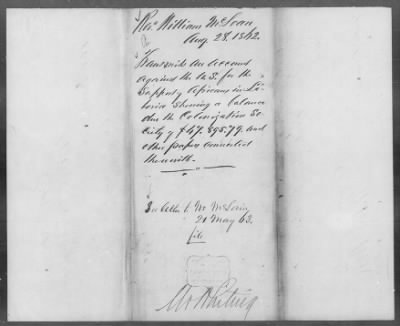 Rev. William McLain
Aug. 28. 1862.
Transmits an Account
against the U.S. for the
Support of Africans in Li-
beria showing a balance
due the Colonization So-
ciety of $47.895.79. and
other papers connected
therewith.
See letter to Mr McLain
21 May 63.
file